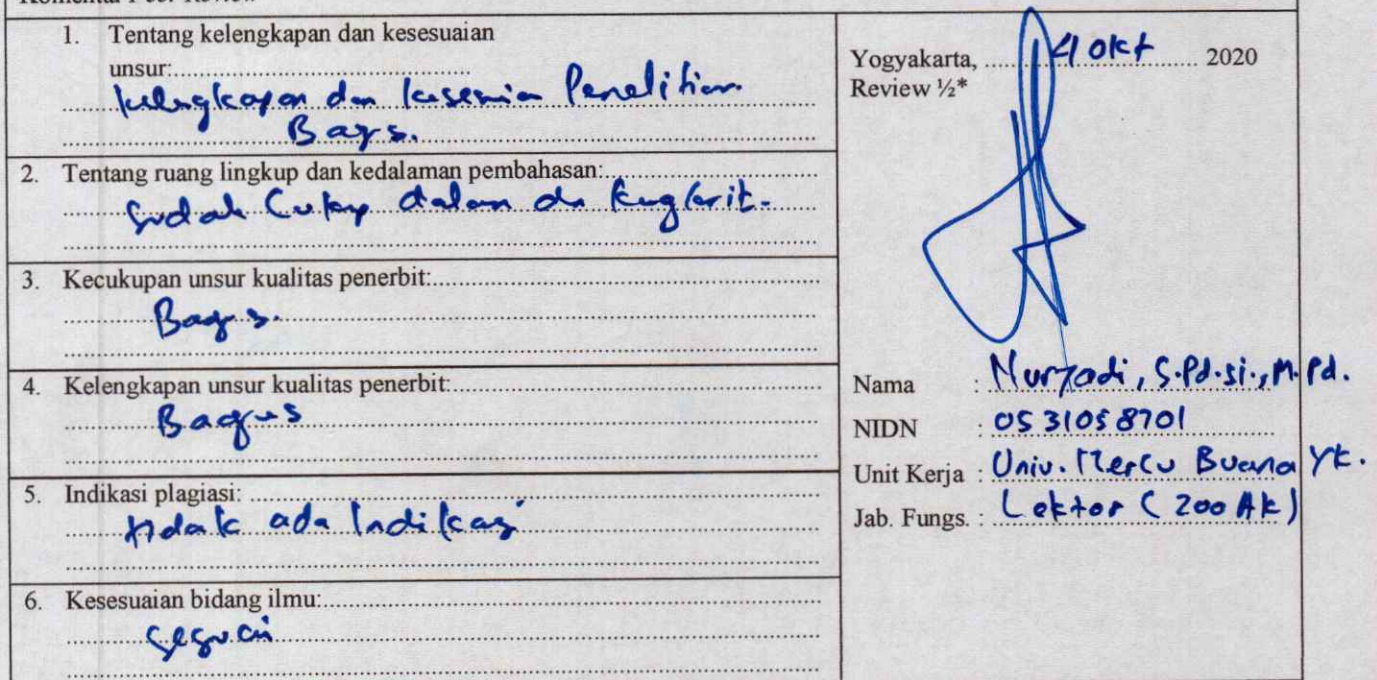 Komentar Peer Review
1. Tentang kelengkapan dan kesesuaian
unsur:
kelengkapan dan kesesuaian Penelitian
Bagus.
2. Tentang ruang lingkup dan kedalaman pembahasan:
Sudah Cukup dalam dan
3. Kecukupan unsur kualitas penerbit:
Bagus.
4. Kelengkapan unsur kualitas penerbit:
Bagus
5. Indikasi plagiasi:
tidak ada Indikasi
6. Kesesuaian bidang ilmu:
sesuai
Yogyakarta, 4 okt 2020
Review ½*
Nama : Nuryadi, S.Pd.si., M.Pd.
NIDN : 0531058701
Unit Kerja : Univ. Mercu Buana Yk.
Jab. Fungs. : Lektor (200 Ak)